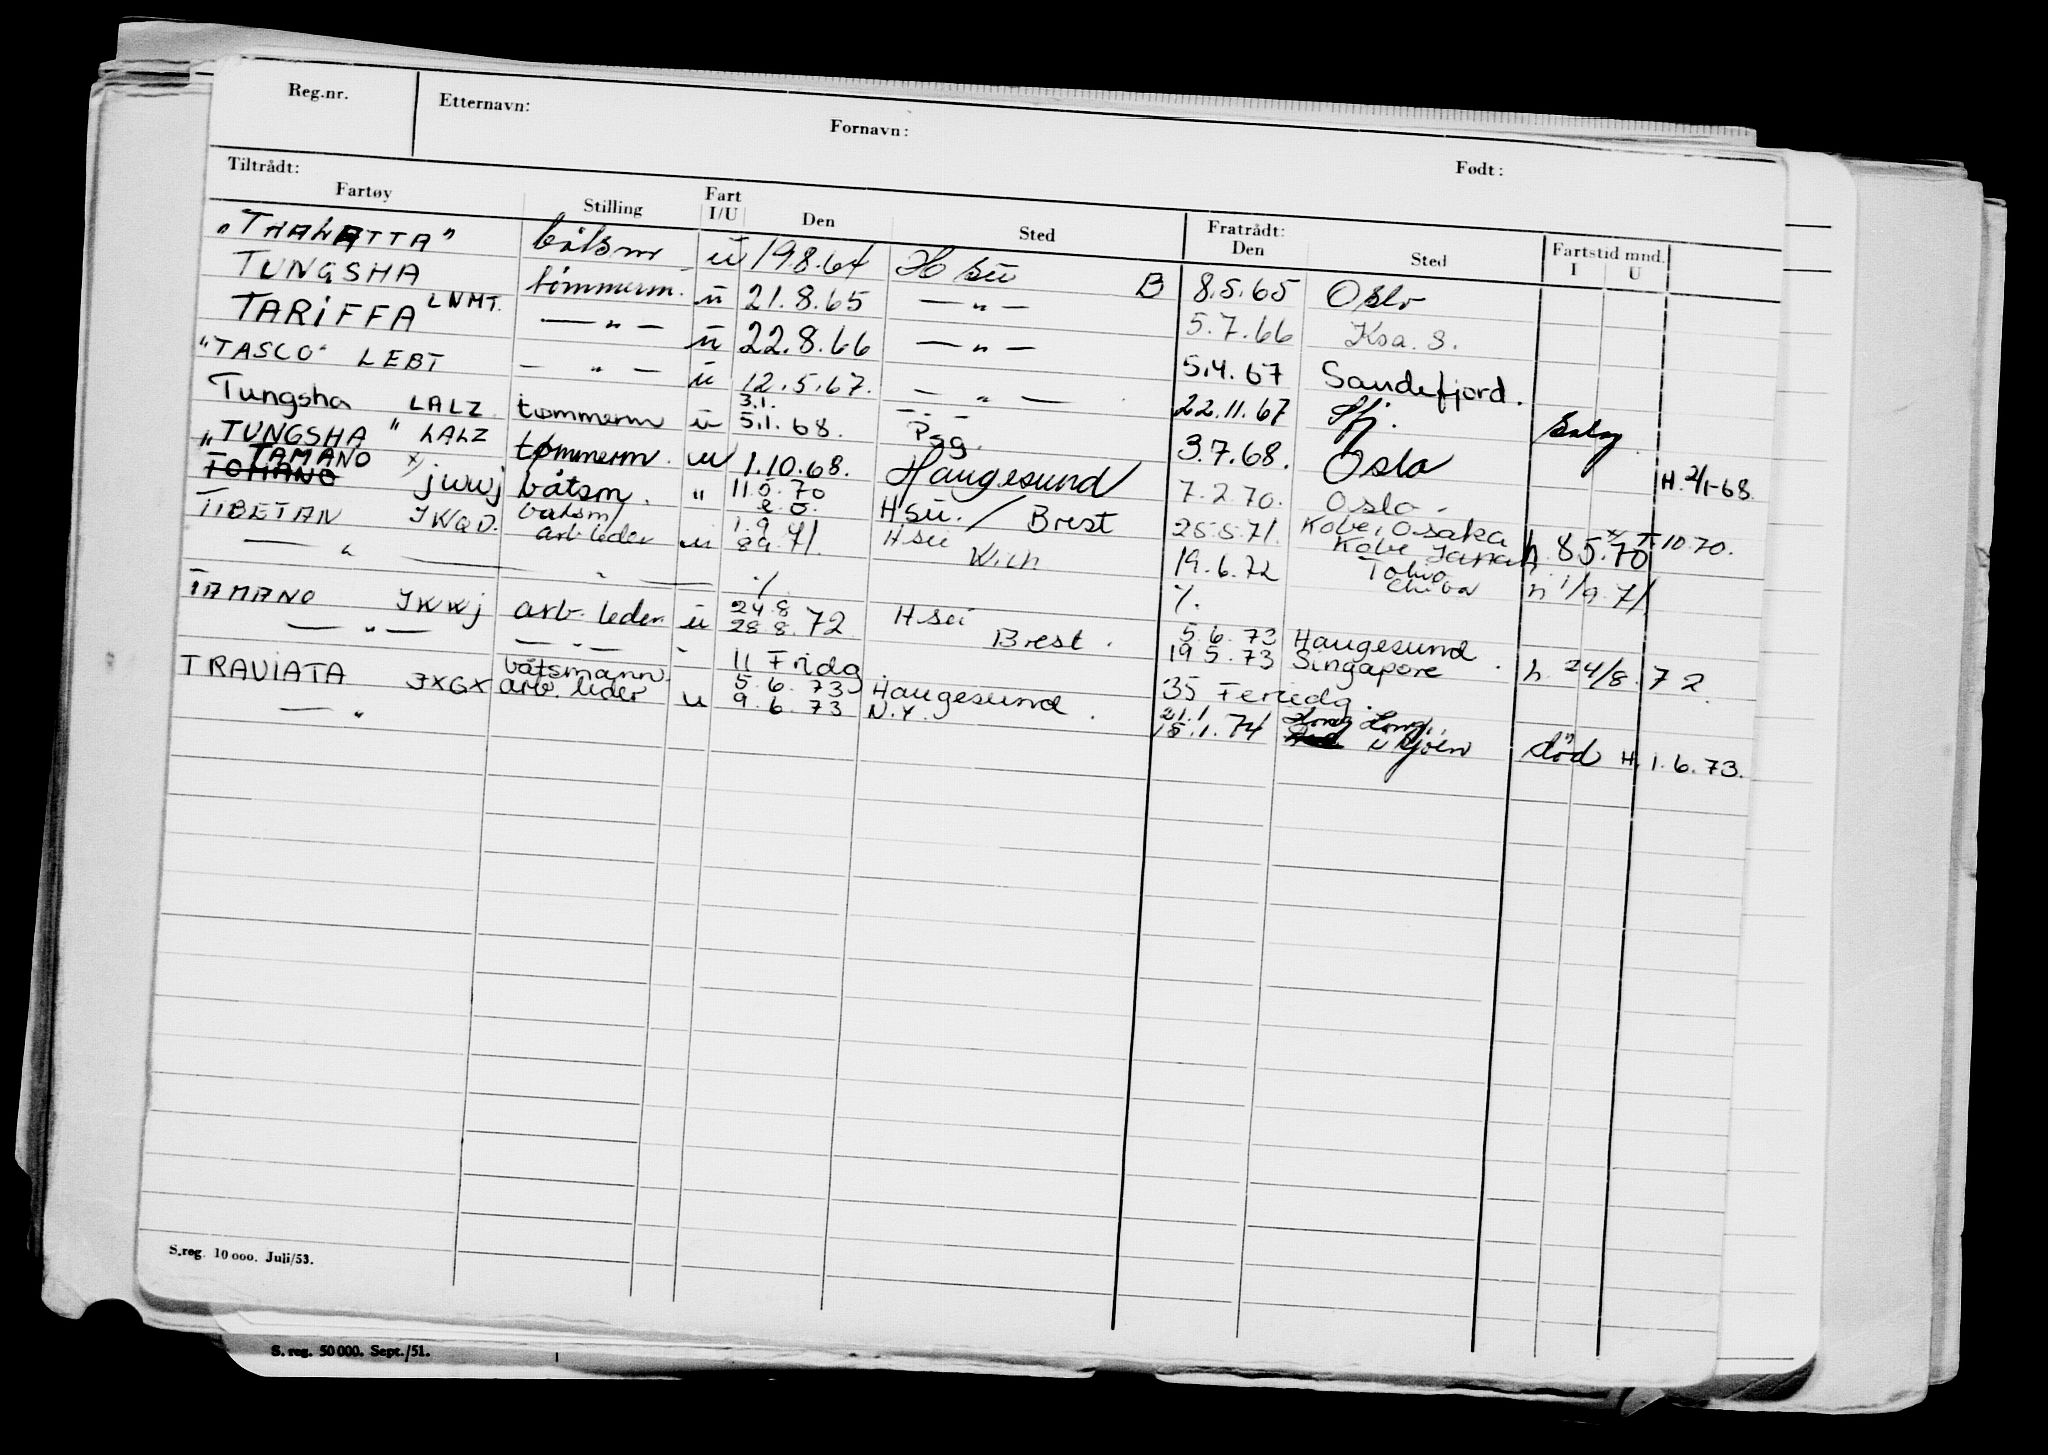 Reg.nr. Etternavn: Fornavn: Født:
Tiltrådt: Fratrådt:
Fartøy Stilling Fart I/U Den Sted Den Sted Fartstid mnd. I U
"THALATTA" båtsm u 19.8.64 H su B 8.5.65 Oslo
TUNGSHA tømmerm. u 21.8.65 — " — 5.7.66 Ksa. S.
TARIFFA LNMT. — " — u 22.8.66 — " — 5.4.67 Sandefjord.
"TASCO" LEBT — " — u 12.5.67. — " — 22.11.67 Sfj.
Tungsha LALZ tømmerm u 3.1. 5.1.68. — " — Psg. 3.7.68. Oslo H. 2/1-68.
"TUNGSHA" LALZ tømmerm. u 1.10.68. Haugesund 7.2.70. Oslo.
TAMANO TOMANO x) jwwj båtsm. " 11.5.70 Hsu. / Brest 25.5.71. Kobe, Osaka h. 8.5.70 x) 7.10.70.
TIBETAN JWQD. båtsm/ arb leder u 1.9. 8.9.71. Hsu Kobe Japan
— " — " — Wich 19.6.72 Tokio Chiba h 1/9.71
%. %.
TAMANO JWWJ arb. leder u 24.8 28.8.72 Hsu 5.6.73 Haugesund
— " — — " — - Brest. 19.5.73 Singapore. h. 24/8.72.
11 Fridg. 35 Feriedg.
TRAVIATA JXGX båtsmann arb. leder u 5.6.73 Haugesund.
— " 9.6.73 N.Y. 21.1 18.1.74 Hong Kong. død H. 1.6.73.
S.reg. 10 000. Juli/53.
S. reg. 50 000. Sept./51.